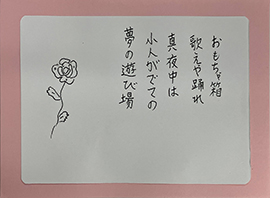 おもちゃ箱
歌えや踊れ
真夜中は
小人がでての
夢の遊び場